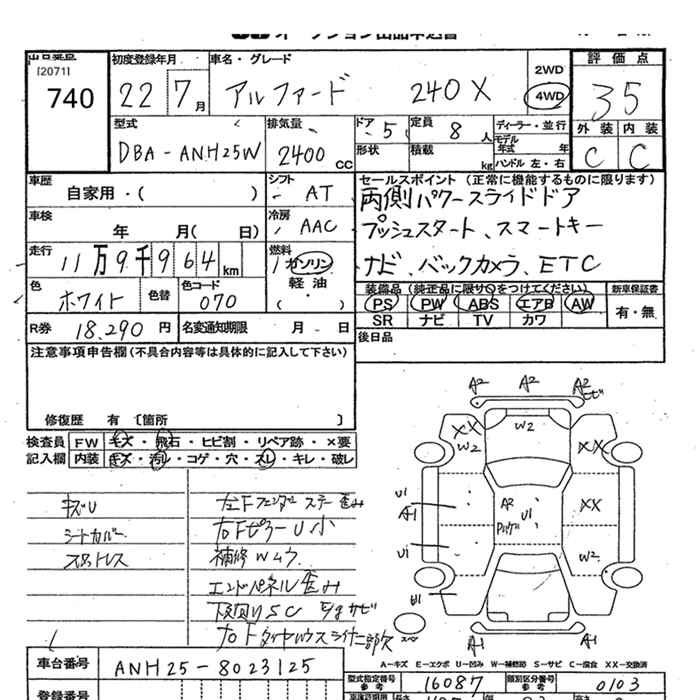 オークション出品申込書
出品番号 初度登録年月 車名・グレード 評価点
(2071)
740 22 7月 アルファード 240X 2WD 4WD 35
型式 排気量 ドア 5 定員 8人 ディーラー・並行 外装 内装
DBA-ANH25W 2400cc 形状 積載 kg モデル年式 年 ハンドル 左・右 C C
車歴 シフト セールスポイント (正常に機能するものに限ります)
自家用・( ) AT 両側パワースライドドア
車検 年 月( 日) 冷房 AAC プッシュスタート、スマートキー
走行 11万9千964km 燃料 ガソリン ナビ、バックカメラ、ETC
軽油・( )
色 色替 色コード 装備品 (純正品に限り○をつけてください) 新車保証書
ホワイト 070 PS PW ABS エアB AW 有・無
SR ナビ TV カワ
R券 18,290円 名変通知期限 月 日 後日品
注意事項申告欄(不具合内容等は具体的に記入して下さい)
修復歴 有 〔箇所 〕
検査員 FW キズ・飛石・ヒビ割・リペア跡・×要
記入欄 内装 キズ・汚レ・コゲ・穴・スレ・キレ・破レ
キズU 左Fフェンダーステー歪み
シートカバー 右FピラーU小
スペアトレス 補修Wムラ
エンドパネル歪み
下回りSC E/gサビ
右Fタイヤハウスライナー部欠
A2 A2 A2
XX W2 W2 XX
U1 A1 A2 U1 XX
U1 W2
B1
A1 A1
A-キズ E-エクボ U-凹み W-補修跡 S-サビ C-腐食 XX-交換済
車台番号 ANH25-8023125
型式指定番号 参考 16087 類別区分番号 参考 0103
登録番号